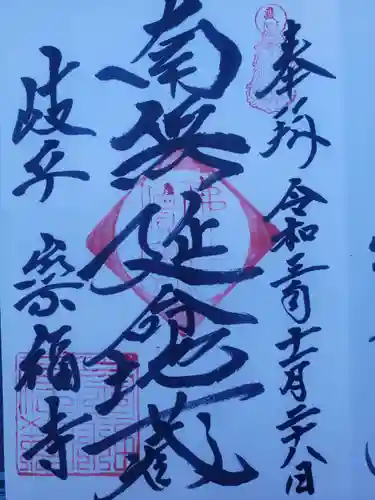 奉拝 令和三年十一月二十八日
南無延命地蔵
岐阜 崇福寺